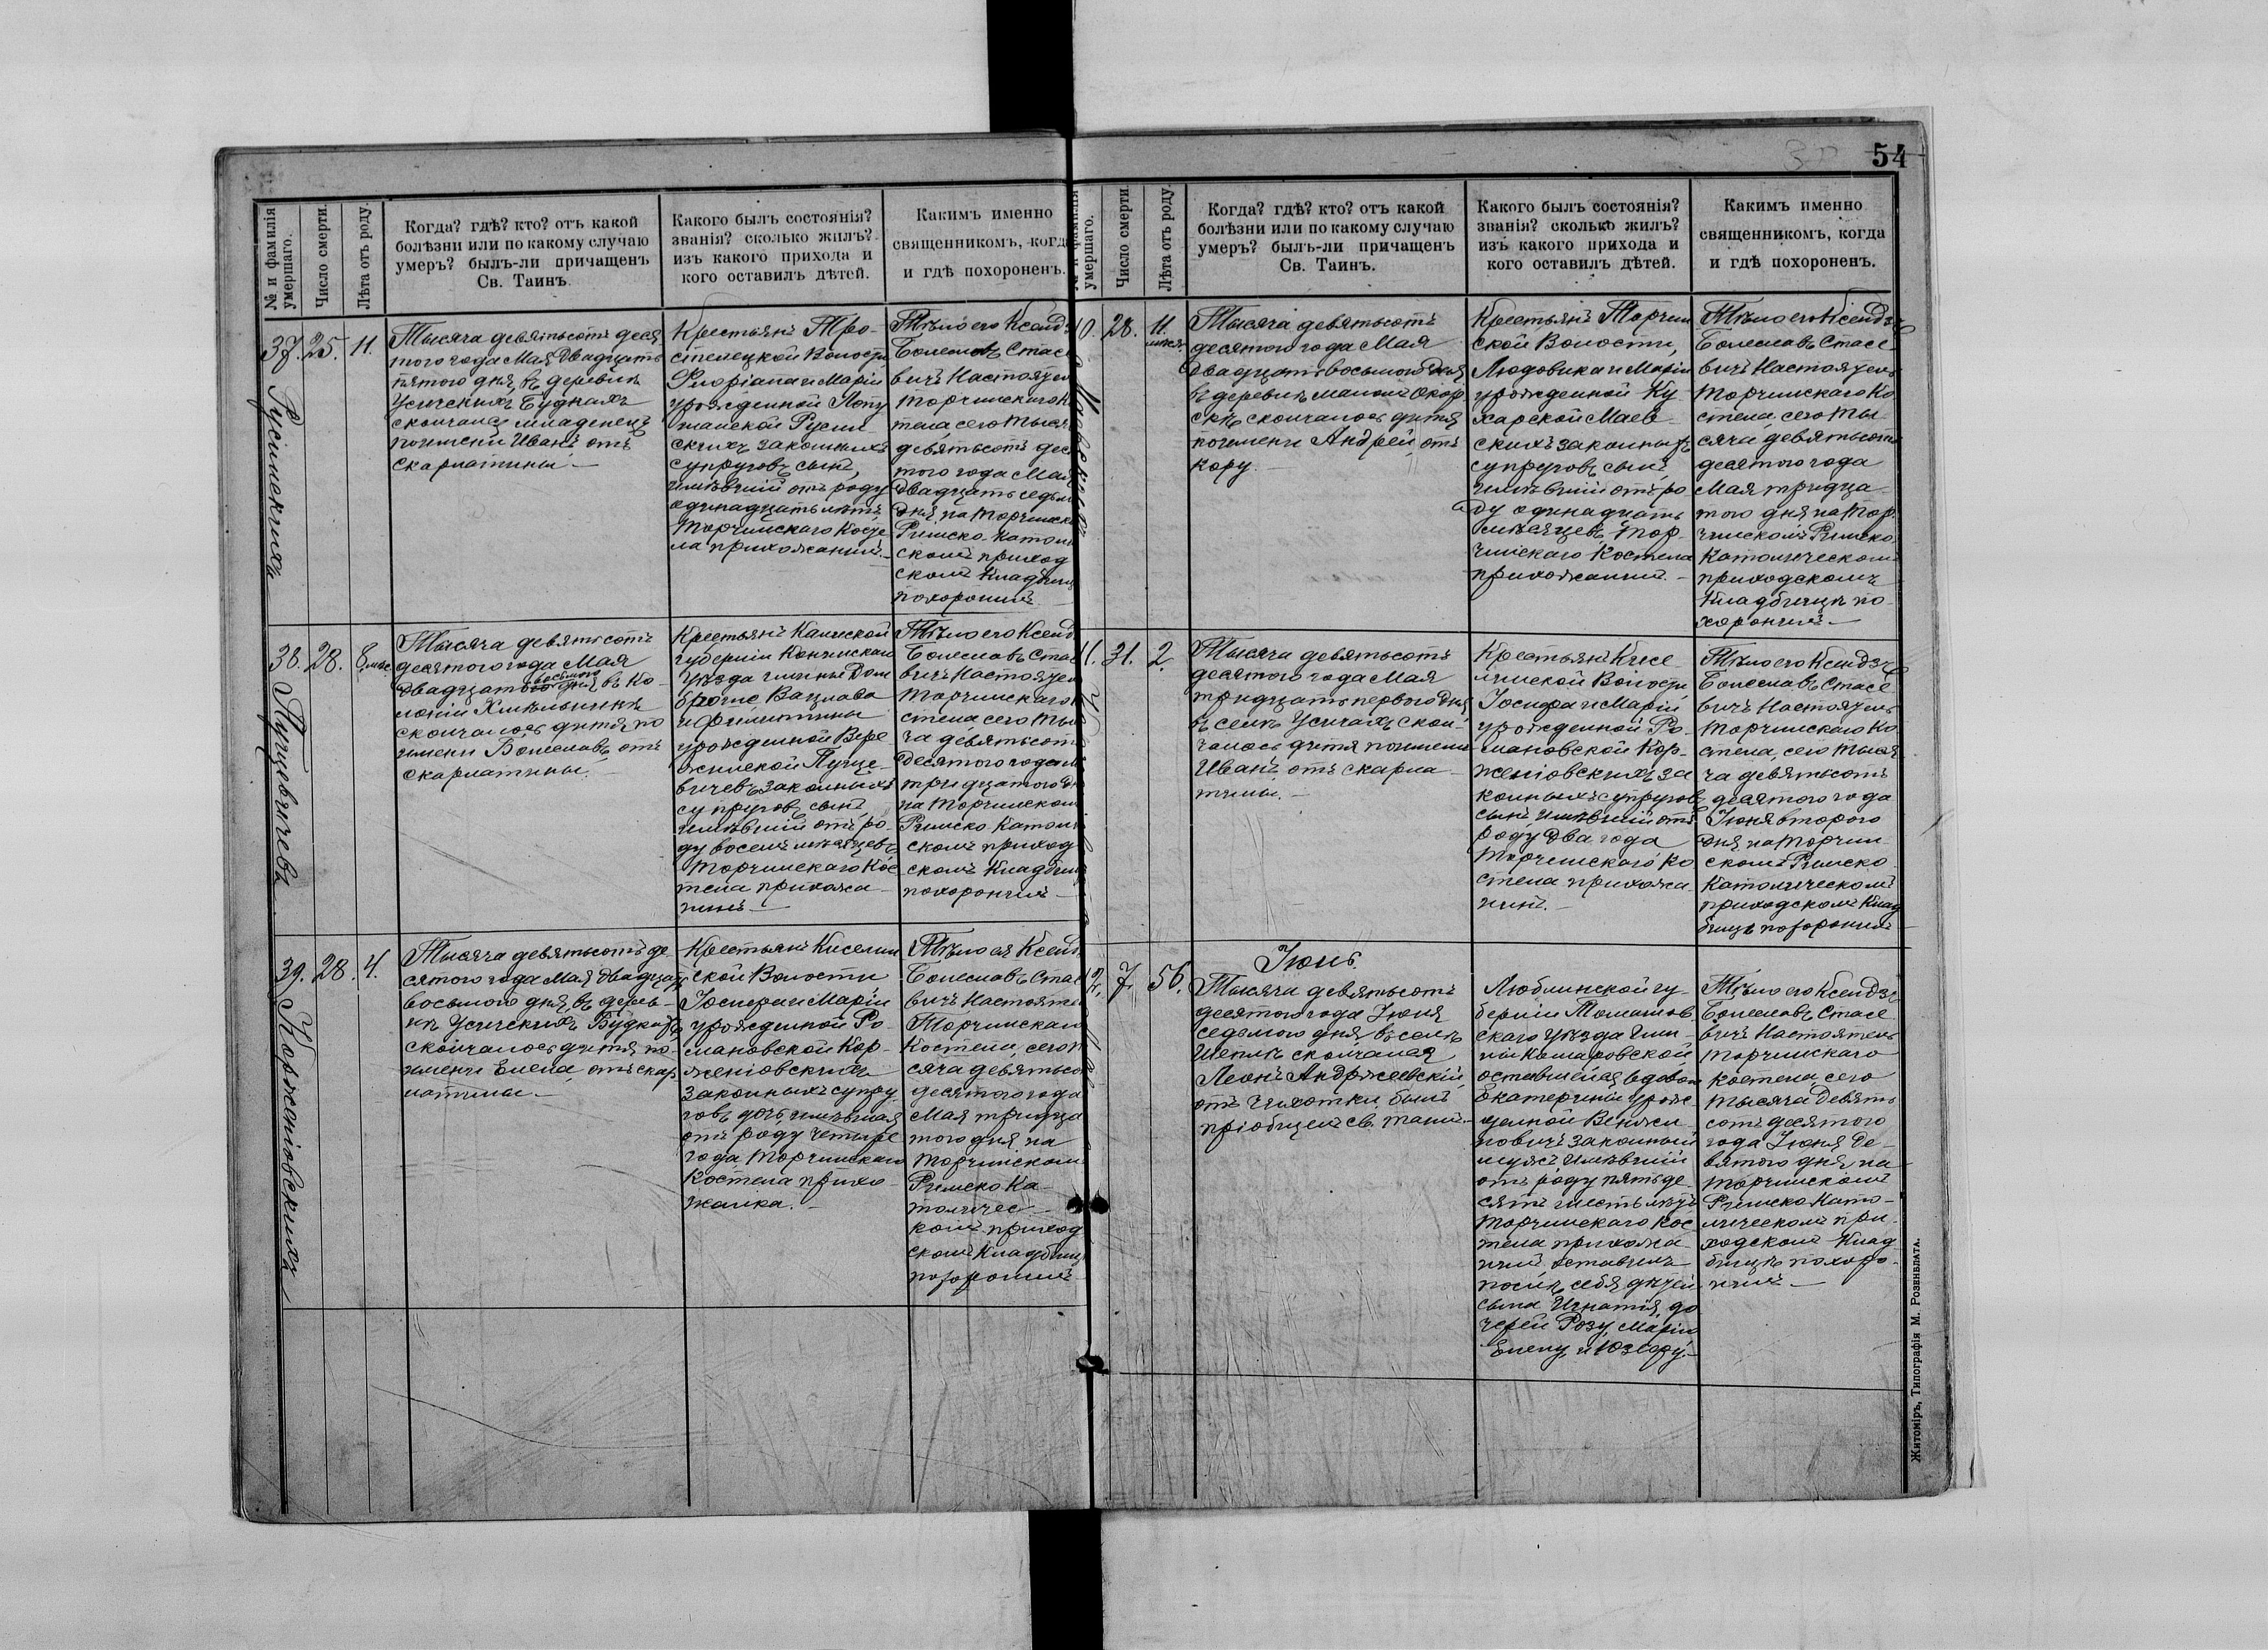 54
№ и фамилія
умершаго.
Число смерти.
Лѣта отъ роду.
Когда? гдѣ? кто? отъ какой
болѣзни или по какому случаю
умеръ? былъ-ли причащенъ
Св. Таинъ.
Какого былъ состоянія?
званія? сколько жилъ?
изъ какого прихода и
кого оставилъ дѣтей.
Какимъ именно
священникомъ, когда
и гдѣ похороненъ.
37.
25.
11.
Тысяча девятьсотъ деся
того года Мая двадцать
пятого дня, въ деревнѣ
Усическихъ Будкахъ
скончался младенецъ
по имени Иванъ отъ
скарлатины. —
Крестьянъ Тро-
стенецкой Волости
Флоріана и Маріи
урожденной
Русин
скихъ законныхъ
супруговъ сынъ,
имѣвшій отъ роду
одинадцать лѣтъ
Торчинскаго Косте
ла прихожанинъ. —
Тѣло его Ксендзъ
Болеславъ Стасе
вичъ Настоятель
Торчинскаго Ко
тела, сего тысяч
девятьсотъ деся
того года Мая
двадцать седьм
дня на Торчинск
Римско-Католи
скомъ приход
скомъ Кладбищ
похоронилъ. —
38.
28.
8 мѣс.
Пуцевичевъ
Тысяча девятьсотъ
десятого года Мая
двадцатого восьмого дня въ Ко-
лоніи Хмѣльникѣ
скончалось дитя по
имени Болеславъ отъ
скарлатины. —
Крестьянъ Калиской
губерніи Конинскаго
уѣзда гмины Дом
броше Вацлава
и Филипины
урожденной Вере
жинской Пуце-
вичевъ законныхъ
супруговъ сынъ,
имѣвшій отъ ро-
ду восемь мѣсяцевъ
Торчинскаго Кос
тела прихожа-
нинъ —
Тѣло его Ксенд
Болеславъ Стас
вичъ Настоятел
Торчинскаго
стела сего тыс
ча девятьсотъ
десятого года М
тридцатого дн
на Торчинском
Римско Католи
скомъ приход
скомъ Кладбищ
похоронилъ —
39.
28.
4.
Корженіовскихъ
Тысяча девятьсотъ де
сятого года Мая двадцать
восьмого дня, въ дерев-
нѣ Усическихъ Будкахъ
скончалось дитя по
имени Елена, отъ скар
латины. —
Крестьянъ Киселин
ской Волости
Іосифа и Маріи
урожденной Ро-
мановской Кор-
женіовскихъ
законныхъ супру
говъ дочь, имѣвшая
отъ роду четыре
года Торчинскаго
Костела прихо-
жанка. —
Тѣло ея Ксендз
Болеславъ Стас
вичъ Настоятел
Торчинскаго
Костела, сего т
сяча девятьсо
десятого года
Мая тридца
того дня на
Торчинскомъ
Римско Ка-
толичес-
комъ приход
скомъ Кладбищ
похоронилъ
умершаго.
Число смерти.
Лѣта отъ роду.
Когда? гдѣ? кто? отъ какой
болѣзни или по какому случаю
умеръ? былъ-ли причащенъ
Св. Таинъ.
Какого былъ состоянія?
званія? сколько жилъ?
изъ какого прихода и
кого оставилъ дѣтей.
Какимъ именно
священникомъ, когда
и гдѣ похороненъ.
0.
28.
11.
мѣся.
Тысяча девятьсотъ
десятого года Мая
двадцать восьмого дня
въ деревнѣ Малой Окор
скѣ скончалось дитя
по имени Андрей, отъ
кору. —
Крестьянъ Торчин
ской Волости,
Людовика и Маріи
урожденной Ку
харской Маев
скихъ законныхъ
супруговъ сынъ
имѣвшій отъ ро-
ду одинадцать
мѣсяцевъ, Тор-
чинскаго Костела
прихожанинъ. —
Тѣло его Ксендзъ
Болеславъ Стасе
вичъ Настоятель
Торчинскаго Ко
стела, сего ты
сяча девятьсотъ
десятого года
Мая тридца
того дня на Тор-
чинскомъ Римско-
Католическомъ
приходскомъ
Кладбищѣ по-
хоронилъ. —
1.
31.
2.
Тысяча девятьсотъ
десятого года Мая
тридцать первого дня
въ селѣ Усичахъ скон-
чалось дитя по имени
Иванъ отъ скарла-
тины. —
Крестьянъ Кисе-
линской Волости
Іосифа и Маріи
урожденной Ро-
мановской Кор-
женіовскихъ за
конныхъ супруговъ
сынъ имѣвшій отъ
роду два года
Торчинскаго Ко
стела прихожа
нинъ. —
Тѣло его Ксендзъ
Болеславъ Стасе
вичъ Настоятель
Торчинскаго Ко
стела, сего тыся
ча девятьсотъ
десятого года
Іюня второго
дня на Торчин
скомъ Римско-
Католическомъ
приходскомъ Клад
бищѣ похоронилъ
Іюнь.
2.
7.
56.
Тысяча девятьсотъ
десятого года Іюня
седьмого дня, въ селѣ
Шепелѣ скончался
Леонъ Андржеевскій
отъ чихотки, былъ
пріобщенъ св. таинъ. —
Люблинской гу-
берніи Томашов
скаго уѣзда Гми-
ны Комаровской
оставшейся вдовою
Екатерины урож
денной Веняжи
новичъ законный
мужъ имѣвшій
отъ роду пятьде
сятъ шесть лѣтъ
Торчинскаго Кос
тела прихожа
нинъ, оставилъ
послѣ себя дѣтей
сына Игнатія, до
черей Розу, Марію
Елену, и Юзефу. —
Тѣло его Ксендзъ
Болеславъ Стасе
вичъ Настоятель
Торчинскаго
Костела, сего
тысяча девять
сотъ десятого
года Іюня де-
вятого дня, на
Торчинскомъ
Римско Като-
лическомъ при-
ходскомъ Клад
бищѣ похоро-
нилъ —
Житоміръ, Типографія М. Розенблата.